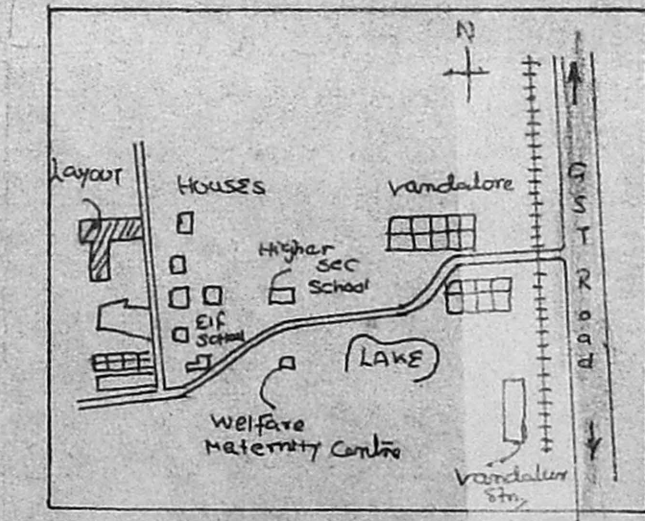 N
Layout
Houses
Vandalore
Higher
Sec
School
GST Road
Elf
School
LAKE
Welfare
Maternity Centre
Vandalur
Stn,